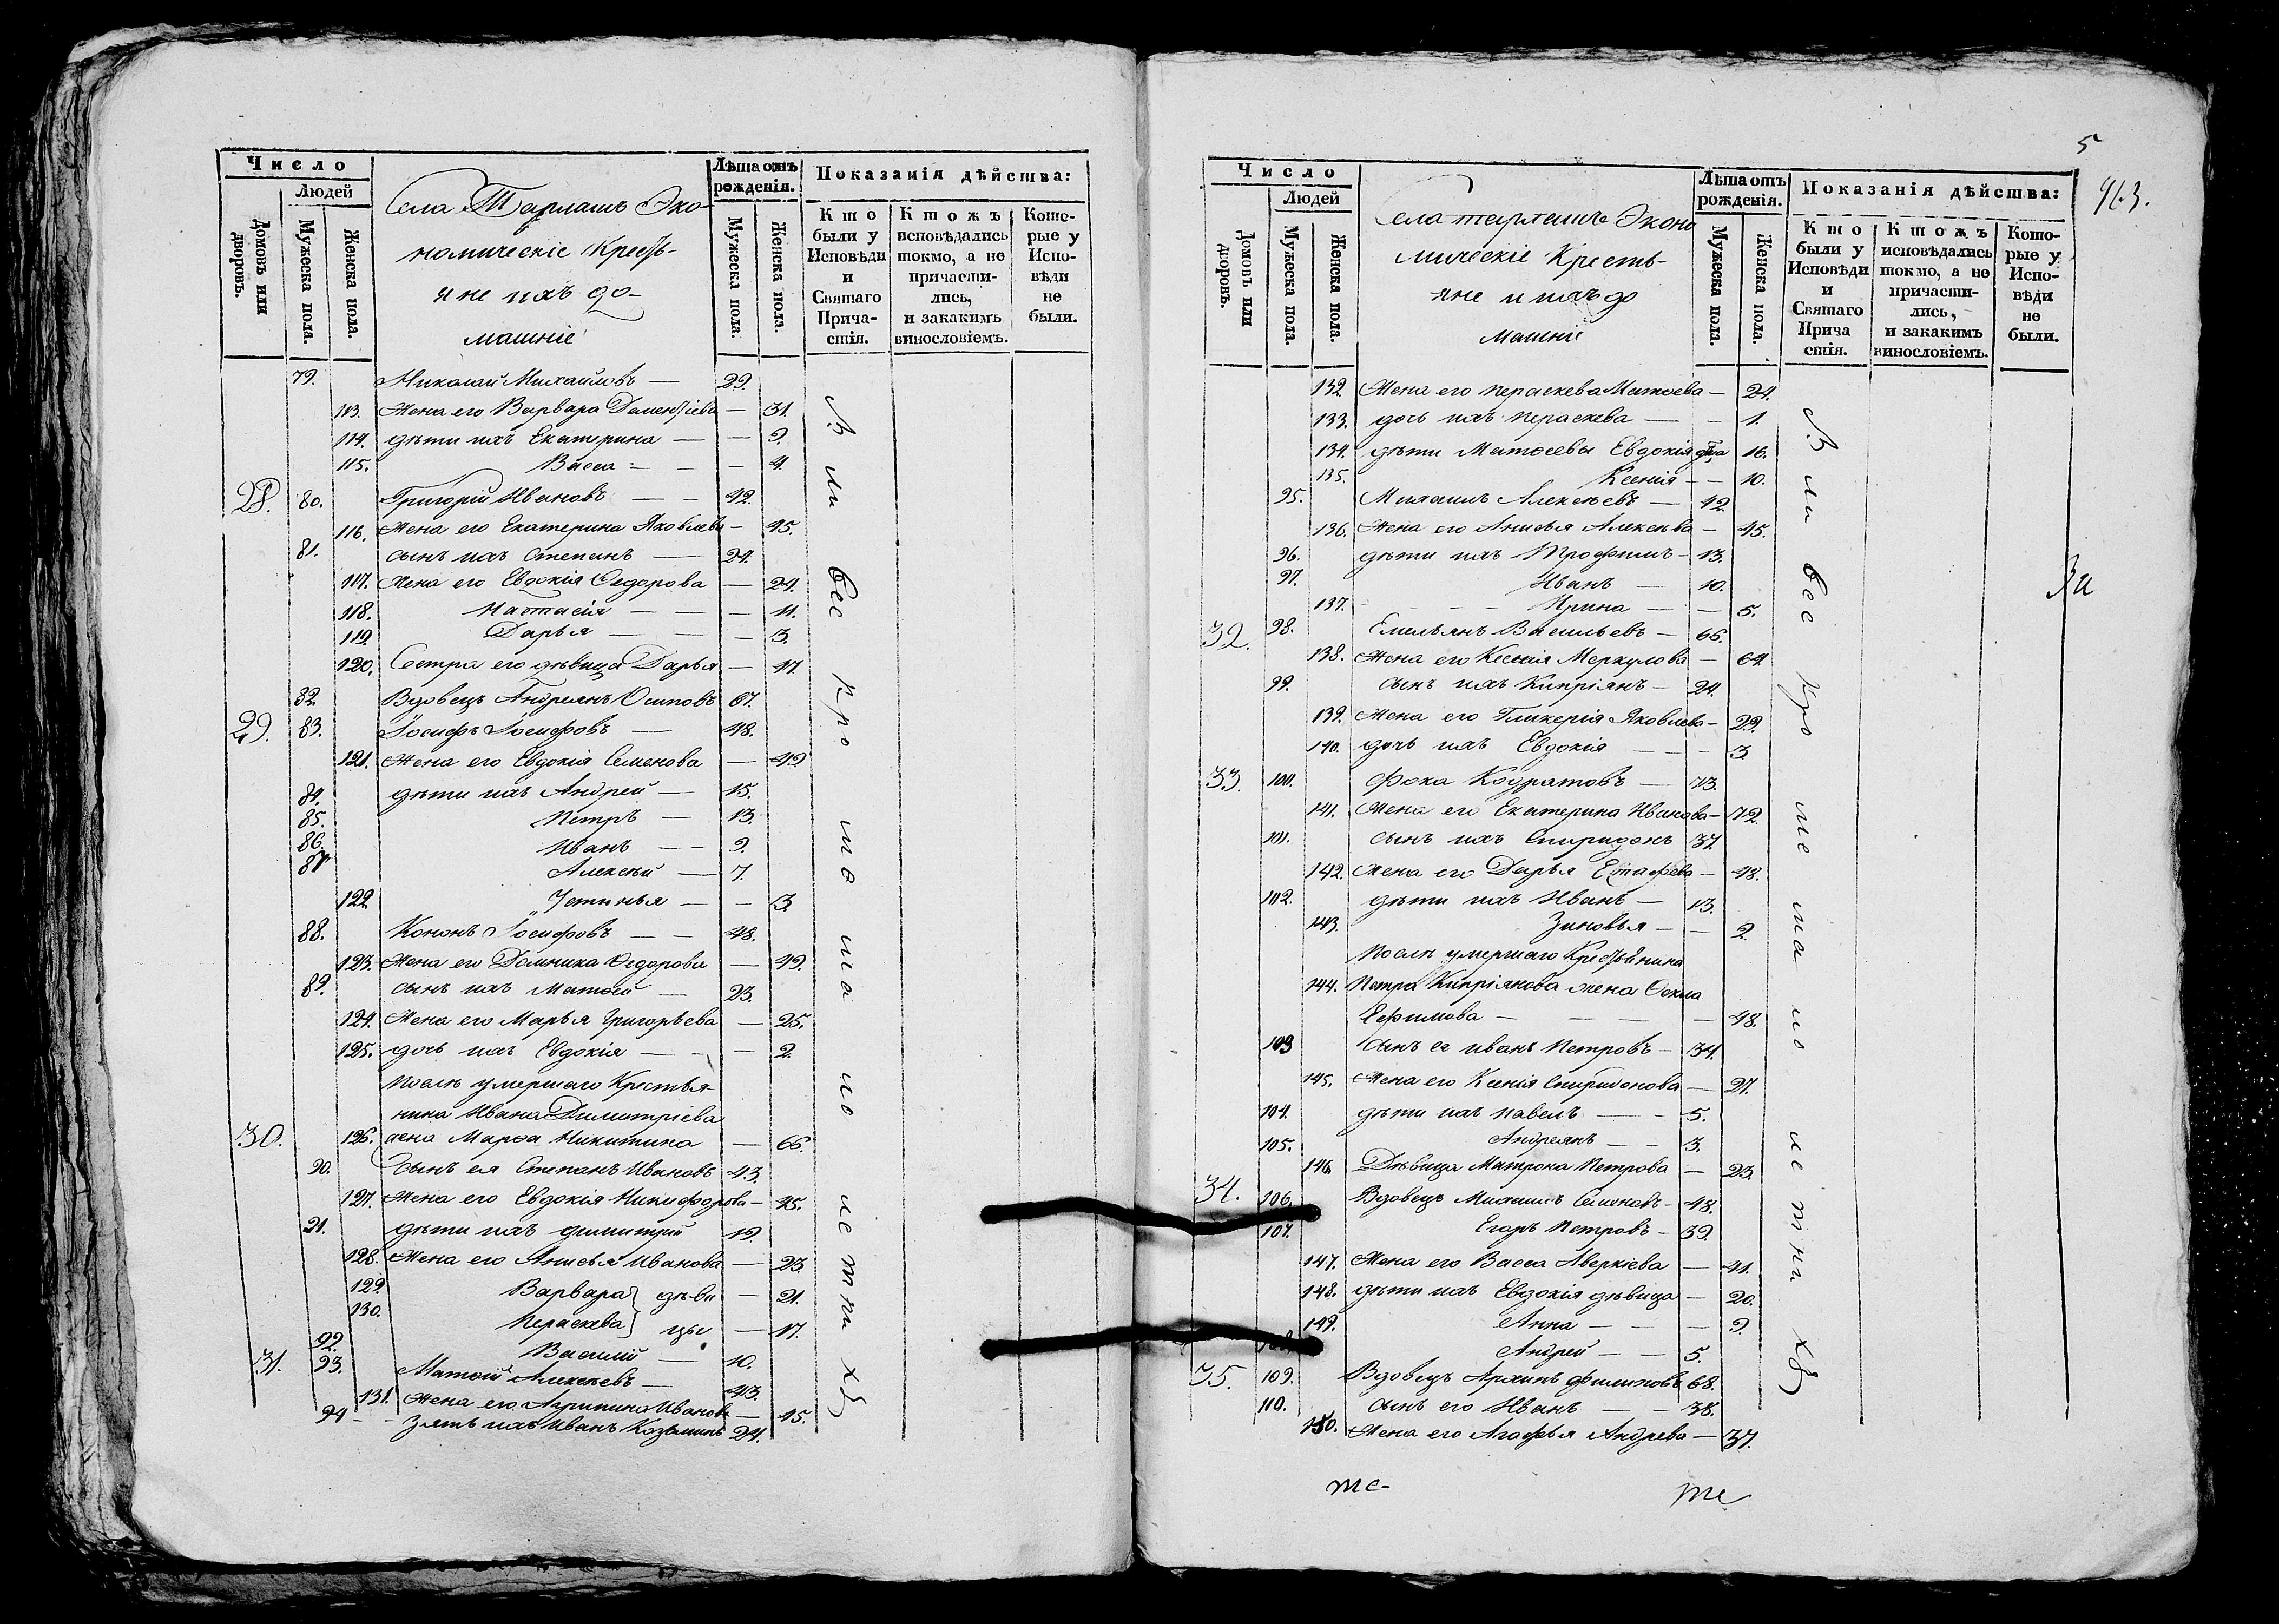 Число
Людей
Домовъ или дворовъ.
Мужеска пола.
Женска пола.
Села Тарлашъ Эко-
номическіе Кресть-
яне ихъ до-
машніе
Лѣта отъ рожденія.
Мужеска пола.
Женска пола.
Показанія дѣйства:
Кто были у Исповѣди и Святаго Прича- стія.
Ктожъ исповѣдались токмо, а не причасти- лись, и закакимъ винословіемъ.
Кото- рые у Испо- вѣди не были.
79. Николай Михайловъ — 29.
113. Жена его Варвара Дементіева — 31.
114. дѣти ихъ Екатерина — — 9.
115. Васса — — 4.
28. 80. Григорій Ивановъ — — 42.
116. Жена его Екатерина Яковлева — 45.
81. сынъ ихъ Степанъ — 24.
117. Жена его Евдокія Ѳедорова — 24.
118. Настасія — — — 11.
119. Дарья — — — 3.
120. Сестра его дѣвица Дарья — 17.
82. Вдовецъ Андреянъ Осиповъ 67.
29. 83. Іосифъ Іосифовъ — 48.
121. Жена его Евдокія Семенова — 49
84. дѣти ихъ Андрей — 15.
85. Петръ — 13.
86. Иванъ — — 9.
87 Алексѣй — 7.
122. Устинья — — 3.
88. Кононъ Іосифовъ — — 48.
123. Жена его Домника Ѳедорова — 49.
89. сынъ ихъ Матѳей — 23.
124. Жена его Марья Григорьева — 25.
125. дочь ихъ Евдокія — — — 2.
послѣ умершаго Крестья-
нина Ивана Димитріева
30. 126. жена Марѳа Никитина — 66.
90. Сынъ ея Степанъ Ивановъ 43.
127. Жена его Евдокія Никифорова — 45.
91. дѣти ихъ Димитрій 19.
128. Жена его Анисья Иванова — 23.
129. Варвара } дѣви — 21.
130. Пераскева } цы — 17.
92. Василій — 10.
31. 93. Матѳей Алексѣевъ — 43.
131. Жена его Агрипина Иванова — 45.
94 — Зять ихъ Иванъ Козьминъ 24.
Вли все кро ше ша но летни хъ
5
963.
Число
Людей
Домовъ или дворовъ.
Мужеска пола.
Женска пола.
Села тарлашъ Эконо
мическіе Кресть-
яне и ихъ до
машніе
Лѣта отъ рожденія.
Мужеска пола.
Женска пола.
Показанія дѣйства:
Кто были у Исповѣди и Святаго Прича стія.
Ктожъ исповѣдались токмо, а не причасти- лись, и закакимъ винословіемъ.
Кото- рые у Испо- вѣди не были.
132. Жена его Пераскева Матѳеева — 24.
133. дочь ихъ Пераскева — — 1.
134. дѣти Матѳеевы Евдокія дѣва 16.
135. Ксенія — — 10.
95. Михаилъ Алексѣевъ — 42.
136. Жена его Анисья Алексѣва — 45.
96. дѣти ихъ Трофимъ — 13.
97. Иванъ — 10.
137. Ирина — — 5.
32. 98. Емельянъ Васильевъ — 65.
138. Жена его Ксенія Меркулова — 64.
99. сынъ ихъ Кипріянъ — 24.
139. Жена его Гликерія Яковлева — 29.
140. дочь ихъ Евдокія — — — 3.
33. 100. Фока Кодратовъ — 73.
141. Жена его Екатерина Иванова — 72.
101. сынъ ихъ Спиридонъ 37.
142. Жена его Дарья Естафѣева — 48.
102. дѣти ихъ Иванъ — 13.
143. Зиновья — — 2.
Послѣ умершаго Крестьянина
144. Петра Кипріянова жена Ѳекла
Ефимова — — — — 48.
103 Сынъ ея Иванъ Петровъ — 34.
145. Жена его Ксенія Спиридонова — 27.
104. дѣти ихъ Павелъ — — 5.
105. Андреянъ — — 3.
146 Дѣвица Матрона Петрова — 23.
34. 106. Вдовецъ Михаилъ Семеновъ — 48.
107. Егоръ Петровъ — 39.
147. Жена его Васса Аверкіева — 41.
148. дѣти ихъ Евдокія дѣвица — 20.
149. Анна — — — 9.
Андрей — — 5.
35. 109. Вдовецъ Архипъ Филиповъ 68.
110. сынъ его Иванъ — — 38.
150. Жена его Агафья Андрева — 37.
Вли все кро ше ма но летни хъ
те-
те